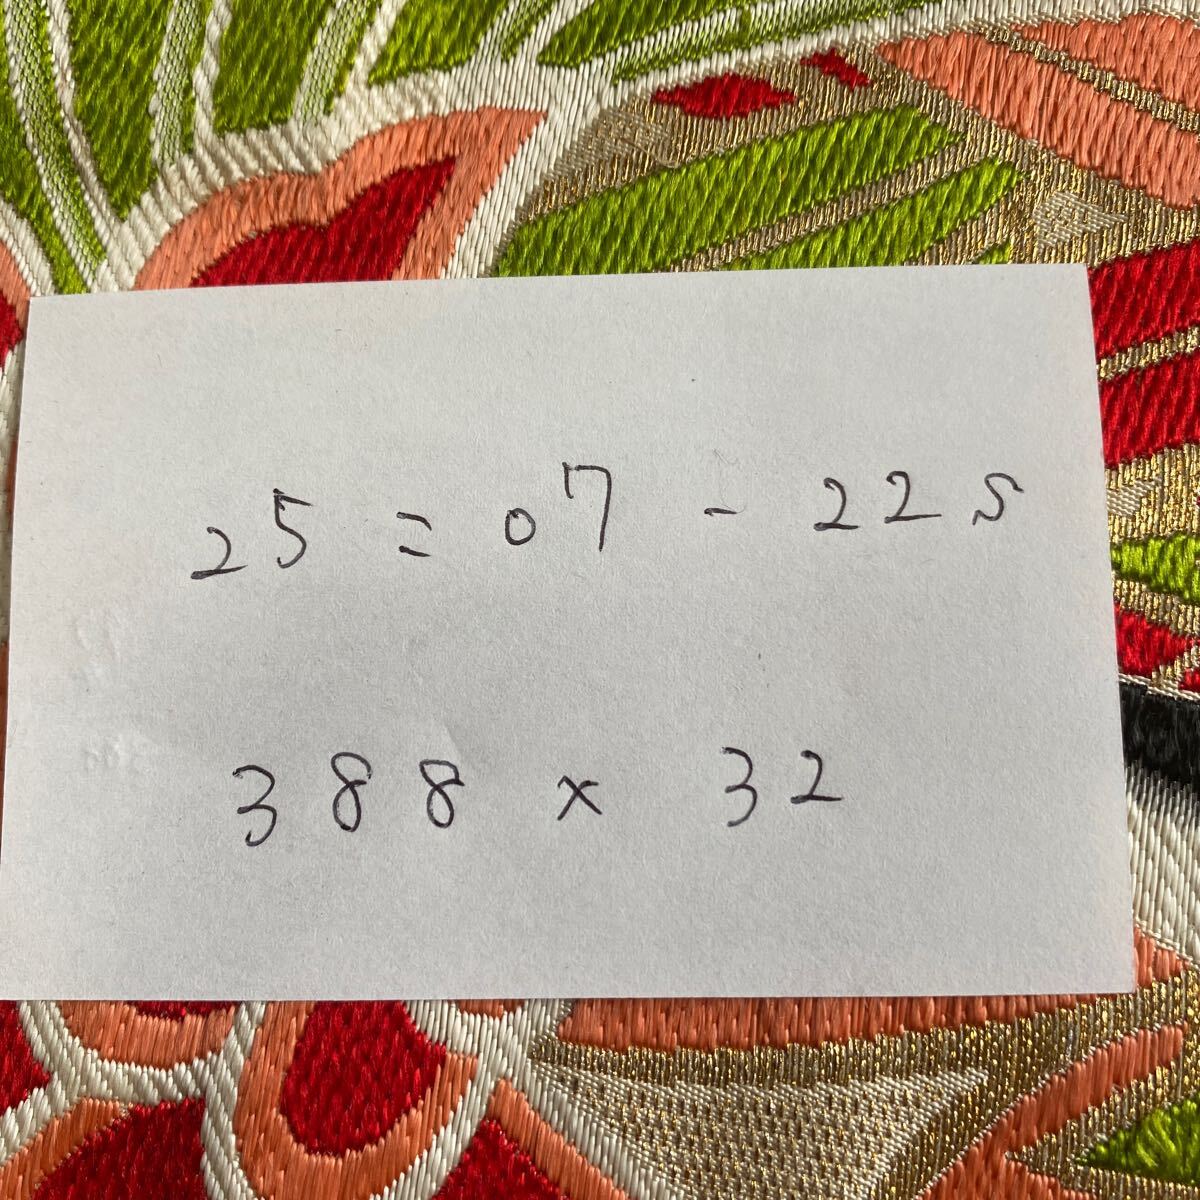 25=07-22s
388 x 32